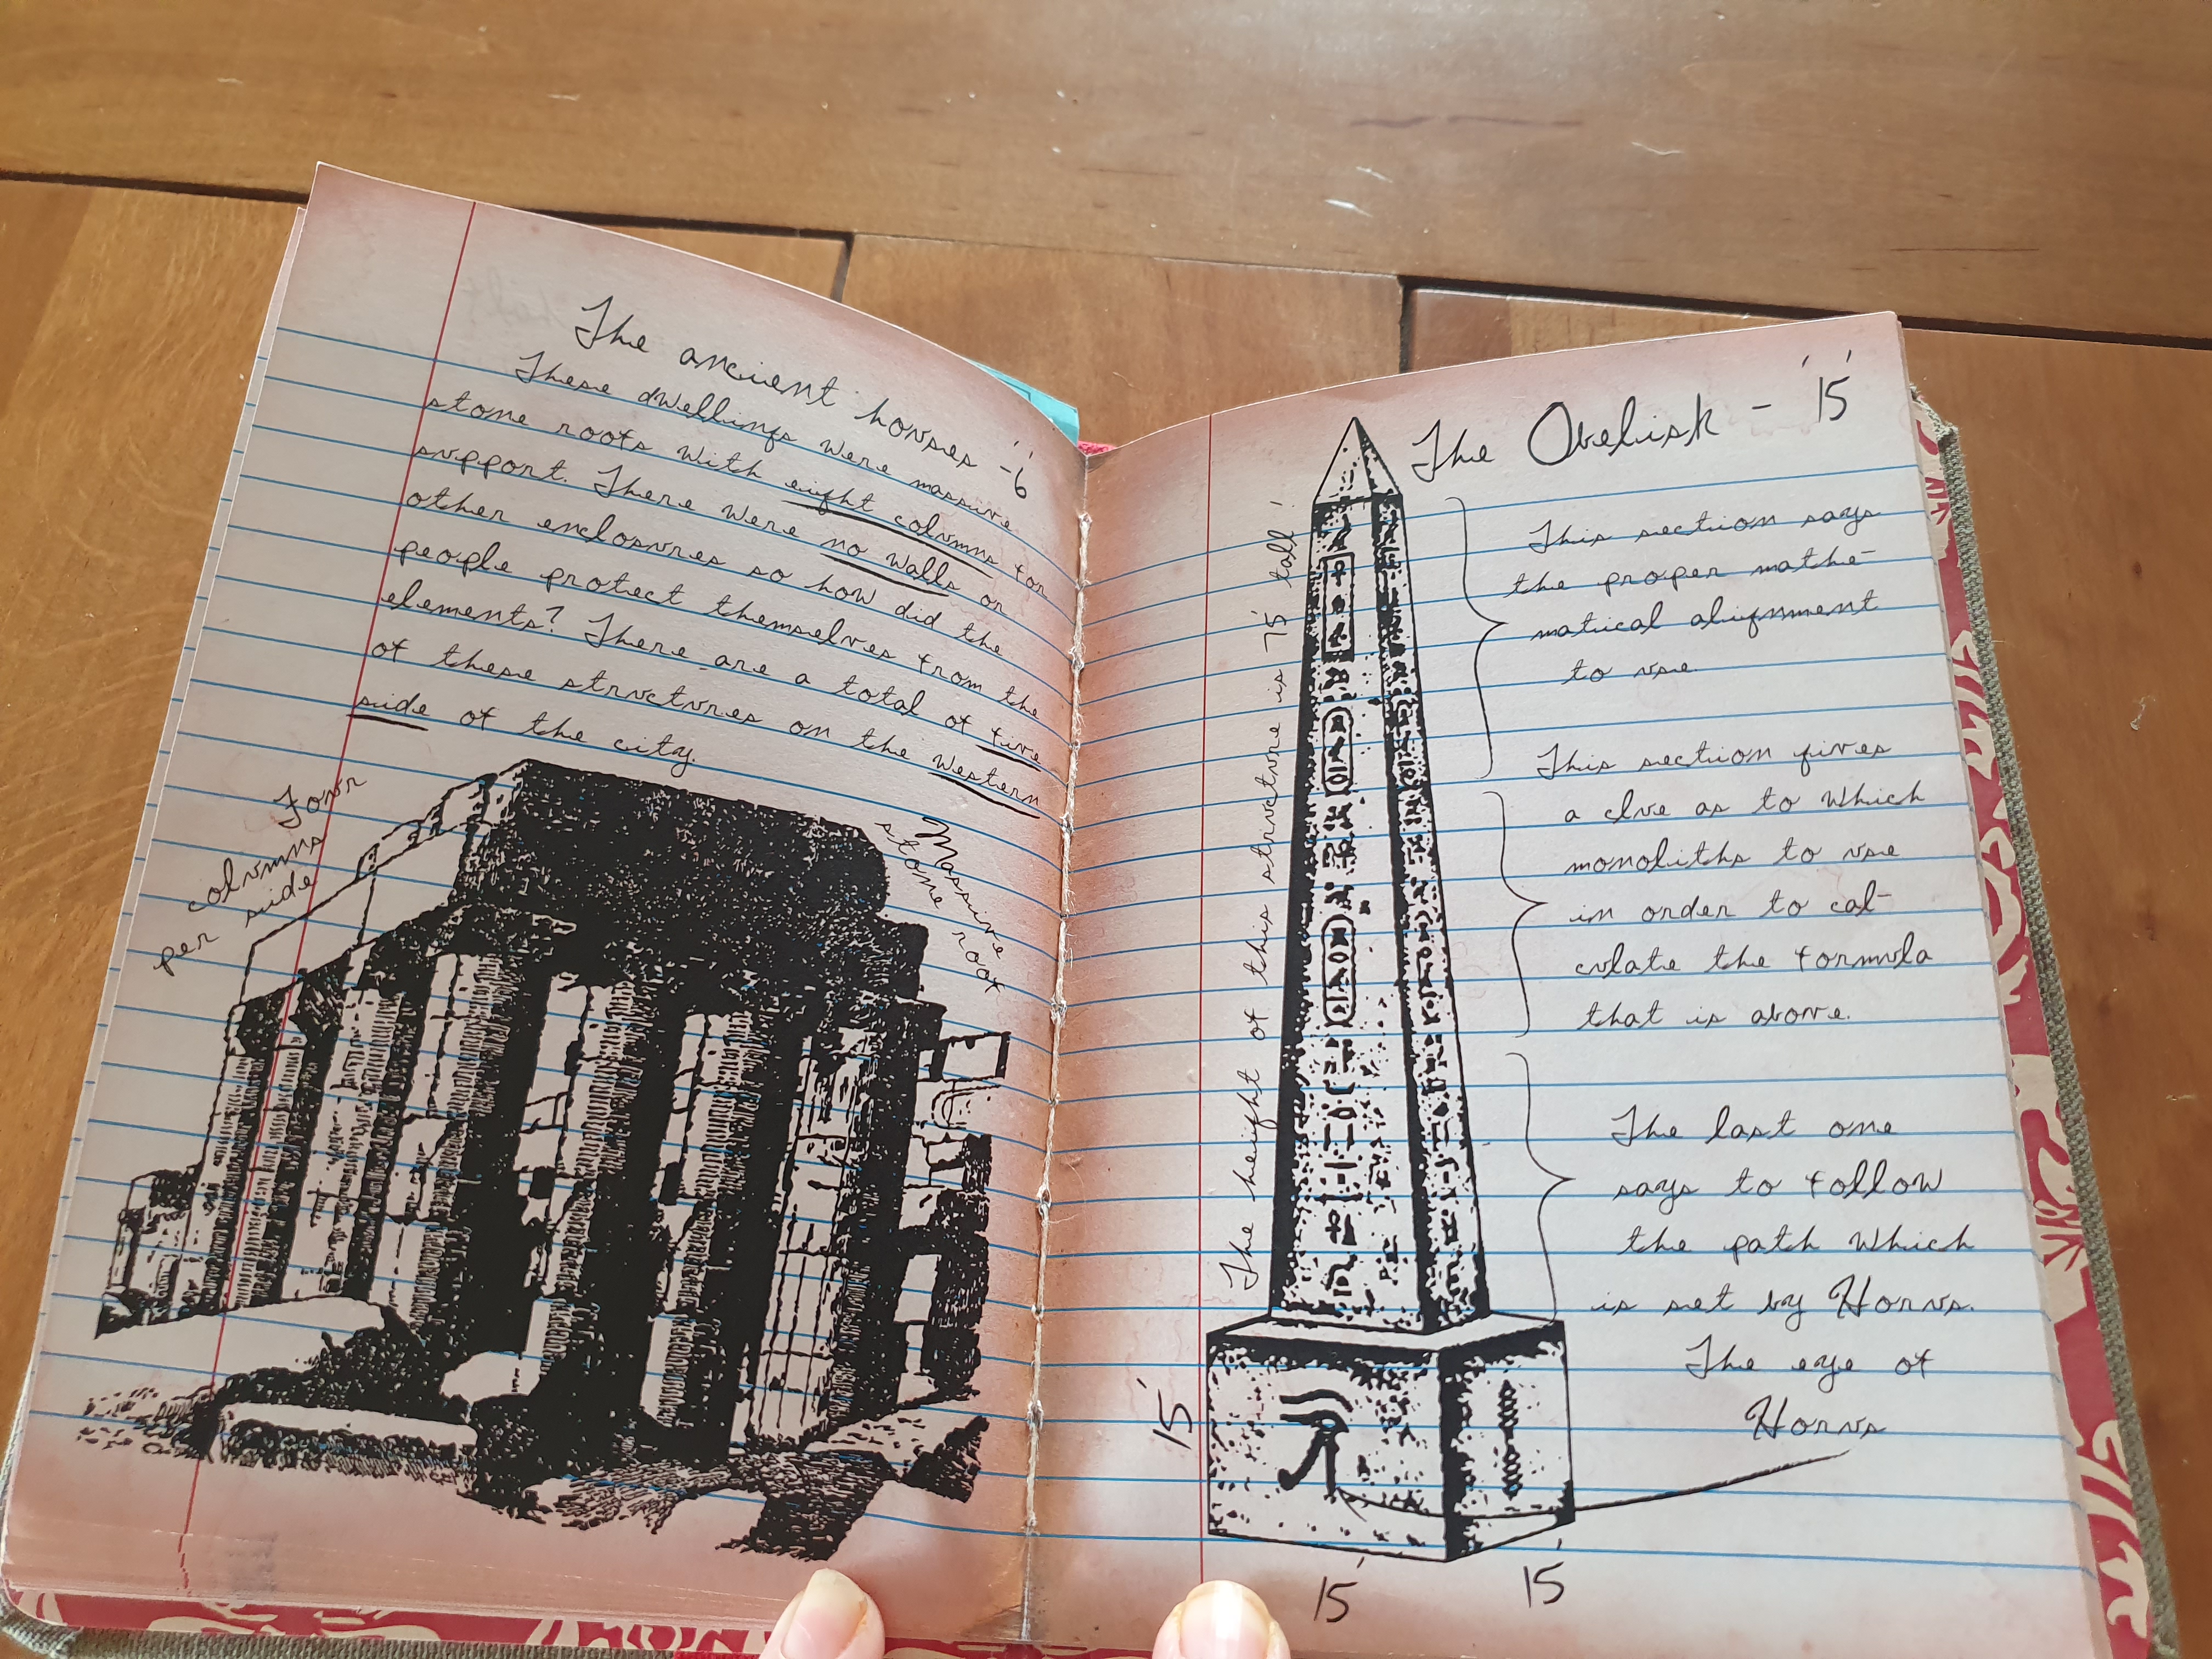 The ancient houses - '6
These dwellings were massive
stone roofs with eight columns for
support. There were no walls or
other enclosures so how did the
people protect themselves from the
elements? There are a total of five
of these structures on the western
side of the city.
Four
columns
per side
Massive
stone roof
The Obelisk - '15'
The height of this structure is 75' tall!
This section says
the proper mathe-
matical alignment
to use.
This section gives
a clue as to which
monoliths to use
in order to cal-
culate the formula
that is above.
The last one
says to follow
the path which
is set by Horus.
The eye of
Horus
15'
15'
15'